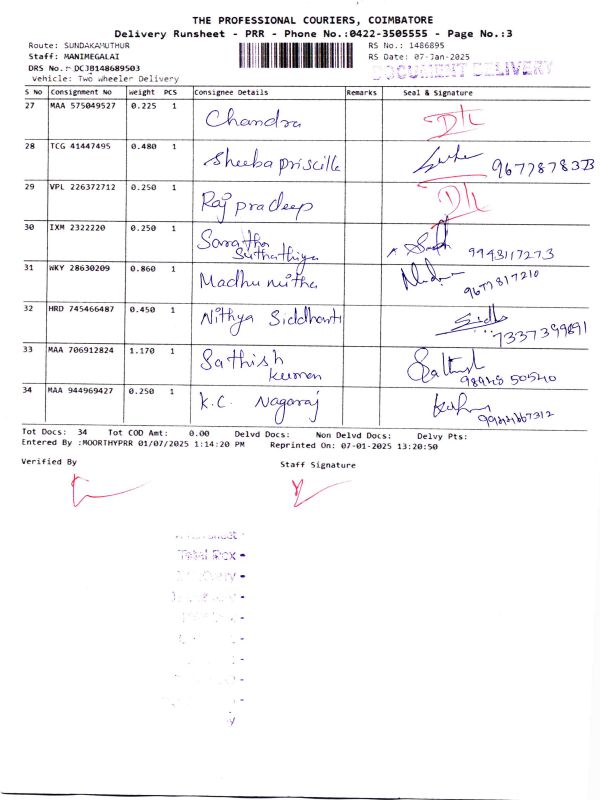 THE PROFESSIONAL COURIERS, COIMBATORE
Delivery Runsheet - PRR - Phone No.:0422-3505555 - Page No.:3
Route: SUNDAKAMUTHUR RS No.: 1486895
Staff: MANIMEGALAI RS Date: 07-Jan-2025
DRS No.: DCJB148689503 DOCUMENT DELIVERY
Vehicle: Two Wheeler Delivery
S No Consignment No Weight PCS Consignee Details Remarks Seal & Signature
27 MAA 575049527 0.225 1 Chandra D/L
28 TCG 41447495 0.480 1 Sheeba priscilla
29 VPL 226372712 0.250 1 Raj pradeep D/L
30 IXM 2322220 0.250 1 Saratha Suthathiya 9943117273
31 WKY 28630209 0.860 1 Madhumitha 9677817210
32 HRD 745466487 0.450 1 Nithya Siddhanti 7337399891
33 MAA 706912824 1.170 1 Sathish kumar 98948 50540
34 MAA 944969427 0.250 1 K.C. Nagaraj
Tot Docs: 34 Tot COD Amt: 0.00 Delvd Docs: Non Delvd Docs: Delvy Pts:
Entered By :MOORTHYPRR 01/07/2025 1:14:20 PM Reprinted On: 07-01-2025 13:20:50
Verified By Staff Signature
Total Box -